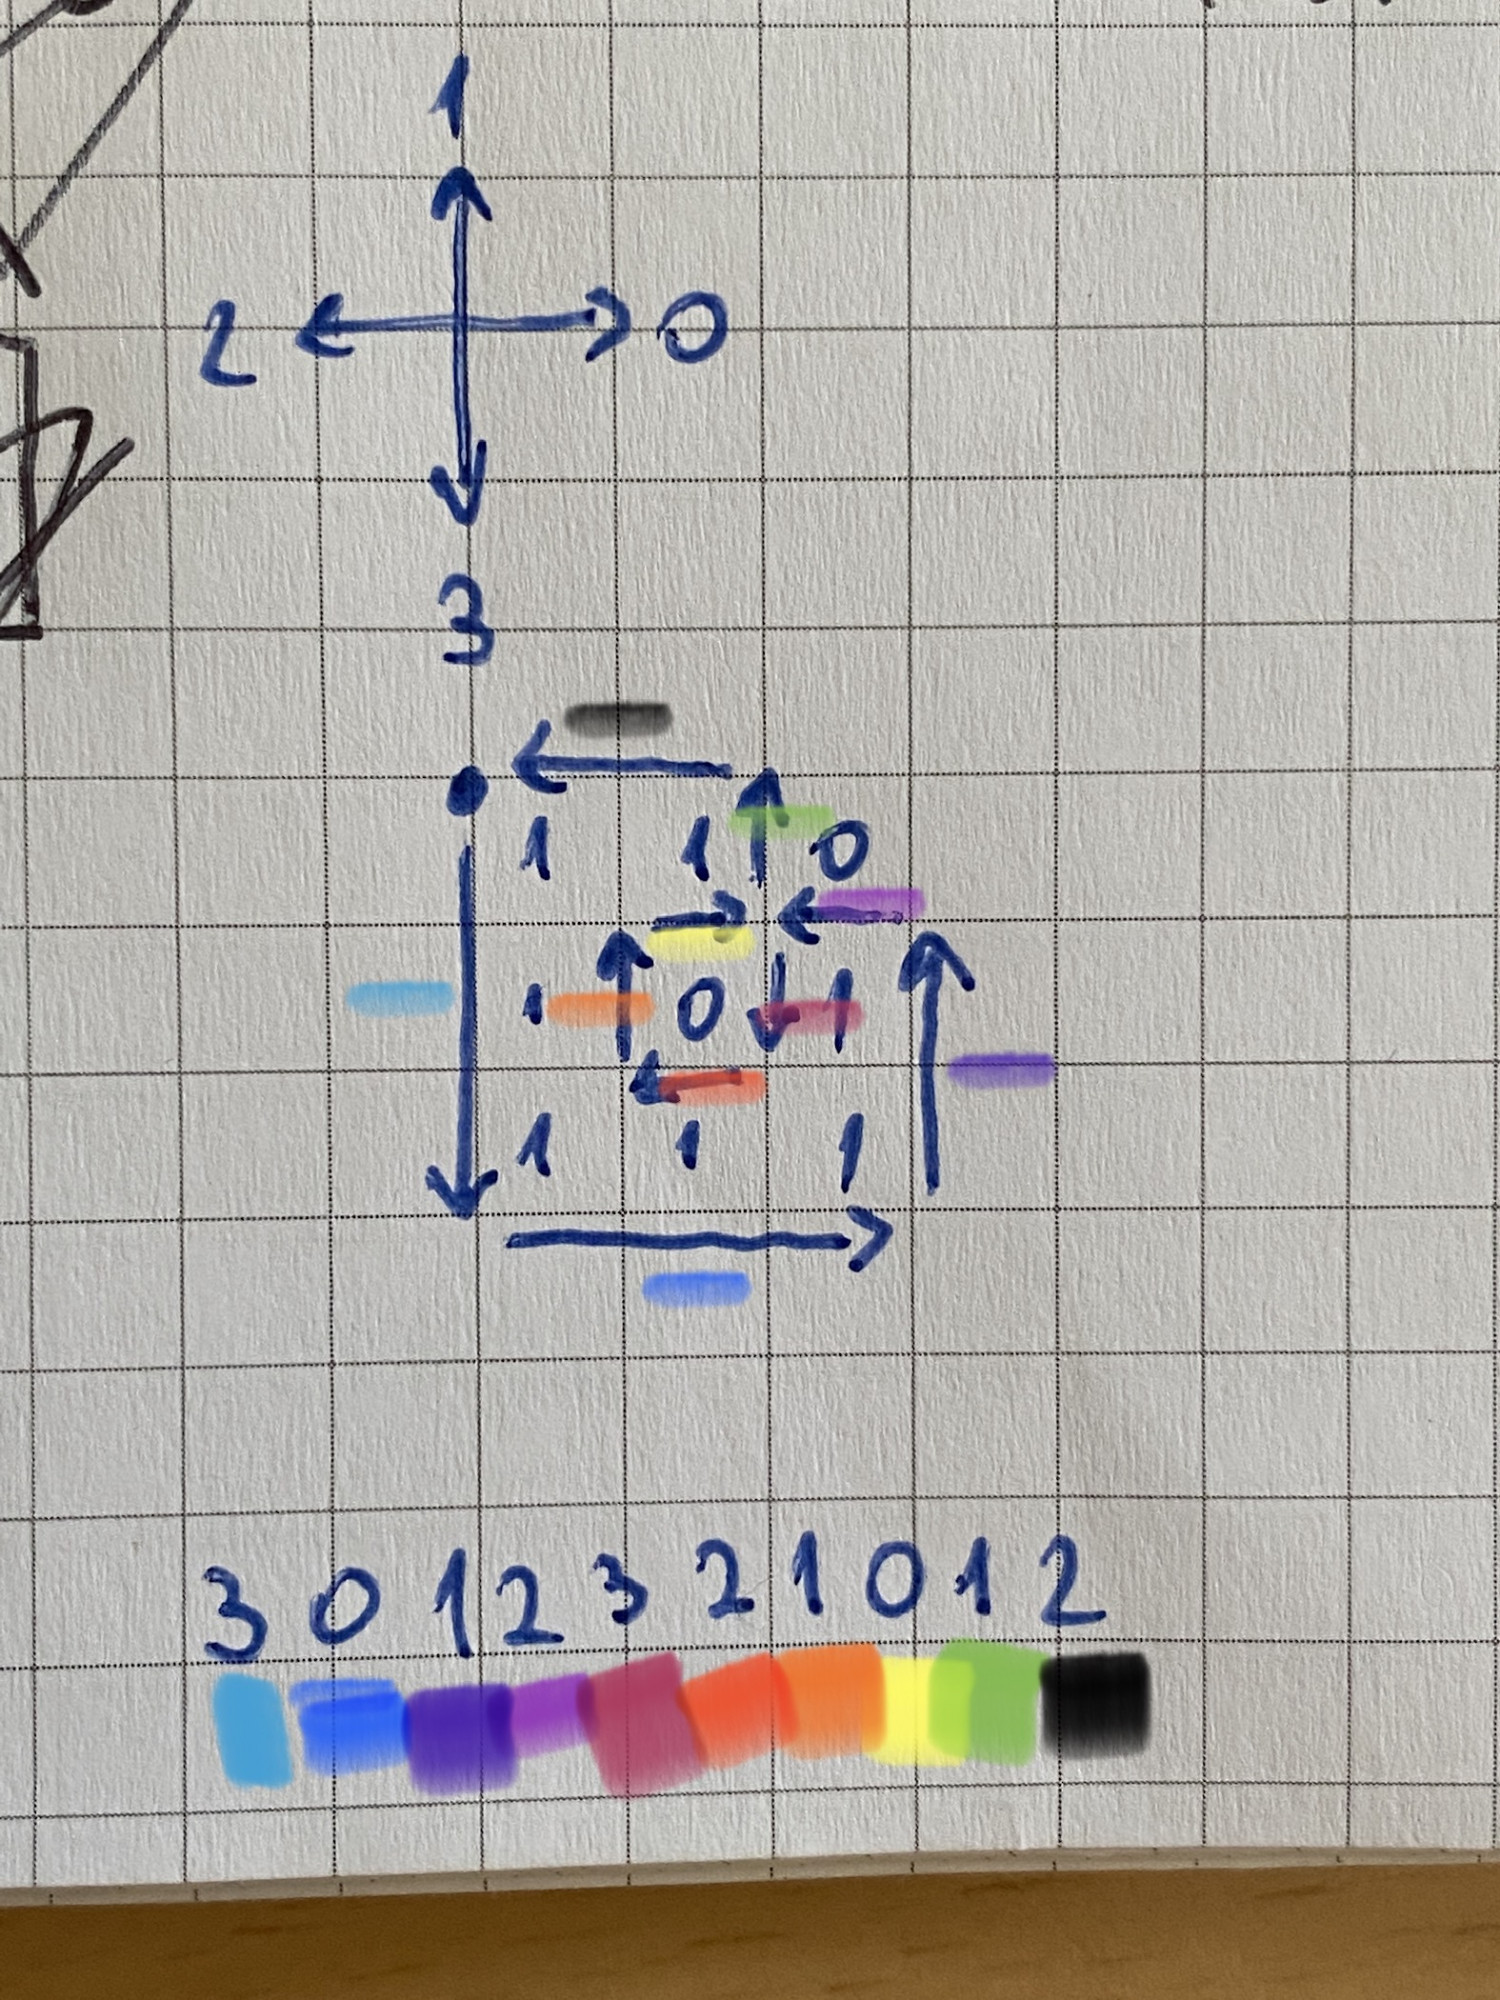 1
2 0
3
1 1 0
1 0 1
1 1 1
3 0 1 2 3 2 1 0 1 2